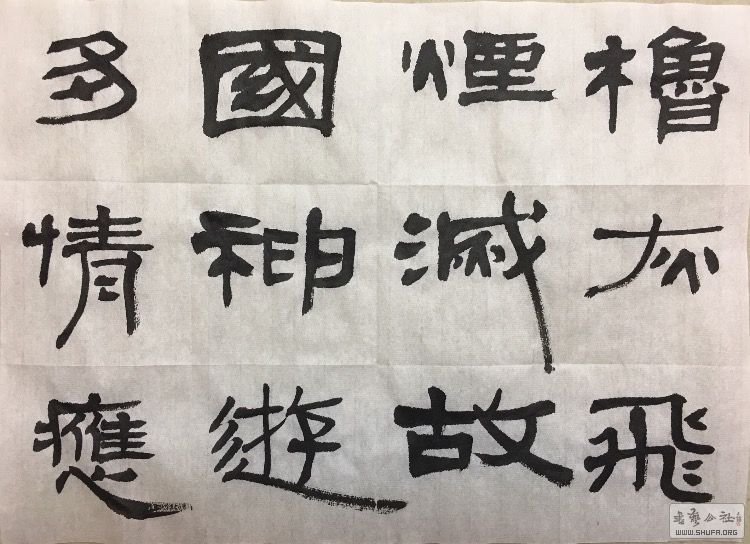 櫓灰飛
煙滅故
國神遊
多情應
書藝公社
WWW.SHUFA.ORG